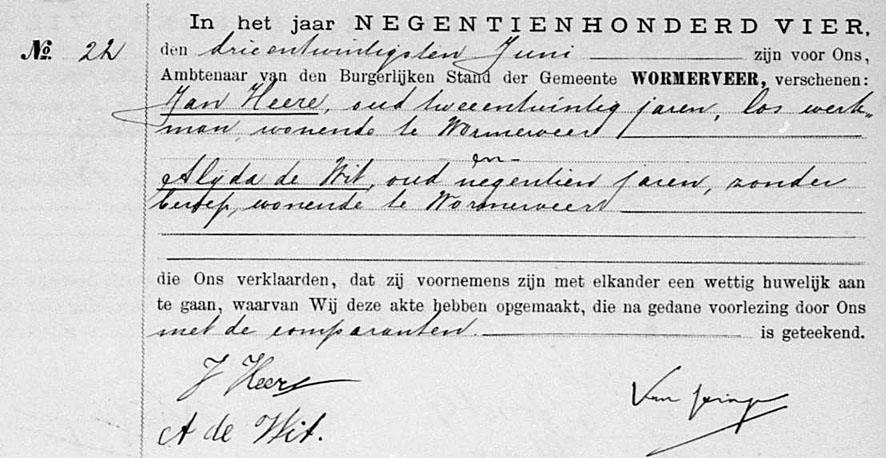 In het jaar NEGENTIENHONDERD VIER,
No. 22 den drieentwintigsten Juni zijn voor Ons,
Ambtenaar van den Burgerlijken Stand der Gemeente WORMERVEER, verschenen:
Jan Heere, oud tweeentwintig jaren, los werk=
man, wonende te Wormerveer
en
Alyda de Wit, oud negentien jaren, zonder
beroep, wonende te Wormerveer
die Ons verklaarden, dat zij voornemens zijn met elkander een wettig huwelijk aan
te gaan, waarvan Wij deze akte hebben opgemaakt, die na gedane voorlezing door Ons
met de comparanten. is geteekend.
J Heere
A de Wit.